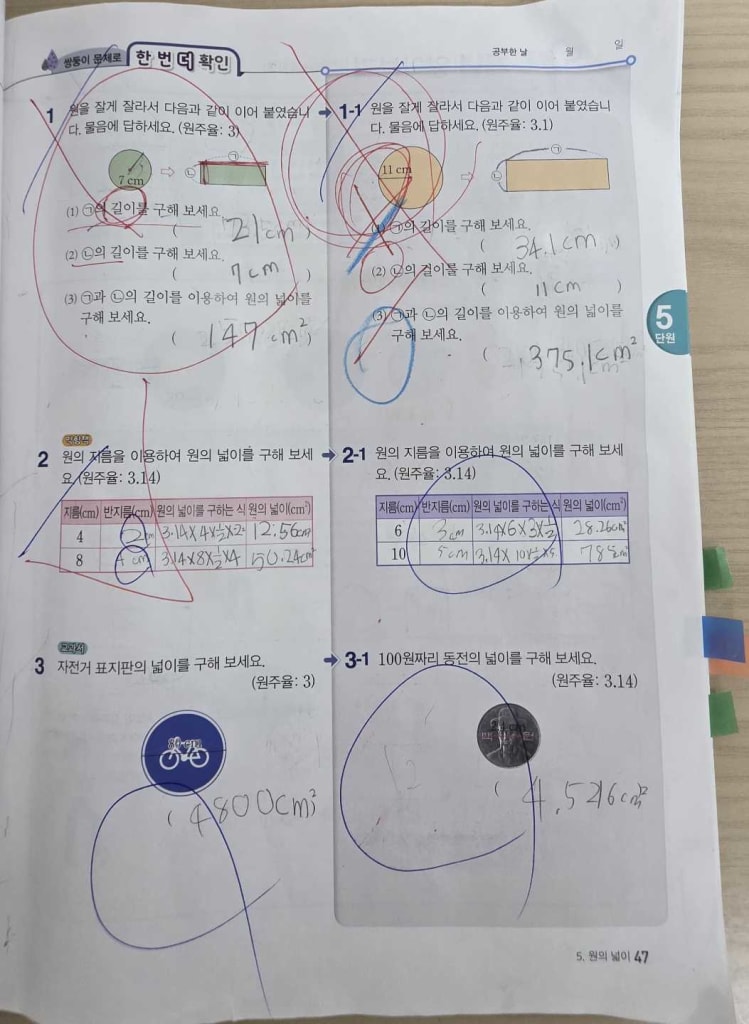 쌍둥이 문제로 한 번 더 확인
공부한 날 월 일
1 원을 잘게 잘라서 다음과 같이 이어 붙였습니
다. 물음에 답하세요. (원주율: 3)
7 cm ⇨ ㉠ ㉡
(1) ㉠의 길이를 구해 보세요.
( 21cm )
(2) ㉡의 길이를 구해 보세요.
( 7cm )
(3) ㉠과 ㉡의 길이를 이용하여 원의 넓이를
구해 보세요.
( 147 cm² )
→ 1-1 원을 잘게 잘라서 다음과 같이 이어 붙였습니
다. 물음에 답하세요. (원주율: 3.1)
11 cm ⇨ ㉠ ㉡
(1) ㉠의 길이를 구해 보세요.
( 34.1cm )
(2) ㉡의 길이를 구해 보세요.
( 11cm )
(3) ㉠과 ㉡의 길이를 이용하여 원의 넓이를
구해 보세요.
( 375.1cm²
5
단원
2 원의 지름을 이용하여 원의 넓이를 구해 보세
요. (원주율: 3.14)
지름(cm) 반지름(cm) 원의 넓이를 구하는 식 원의 넓이(cm²)
4 2cm 3.14×4×½×2 12.56cm²
8 4cm 3.14×8×½×4 50.24cm²
→ 2-1 원의 지름을 이용하여 원의 넓이를 구해 보세
요. (원주율: 3.14)
지름(cm) 반지름(cm) 원의 넓이를 구하는 식 원의 넓이(cm²)
6 3cm 3.14×6×3×½ 28.26cm²
10 5cm 3.14×10×½×5
교과서
3 자전거 표지판의 넓이를 구해 보세요.
(원주율: 3)
80 cm
( 4800cm²
→ 3-1 100원짜리 동전의 넓이를 구해 보세요.
(원주율: 3.14)
( 4.5216cm²
5. 원의 넓이 47